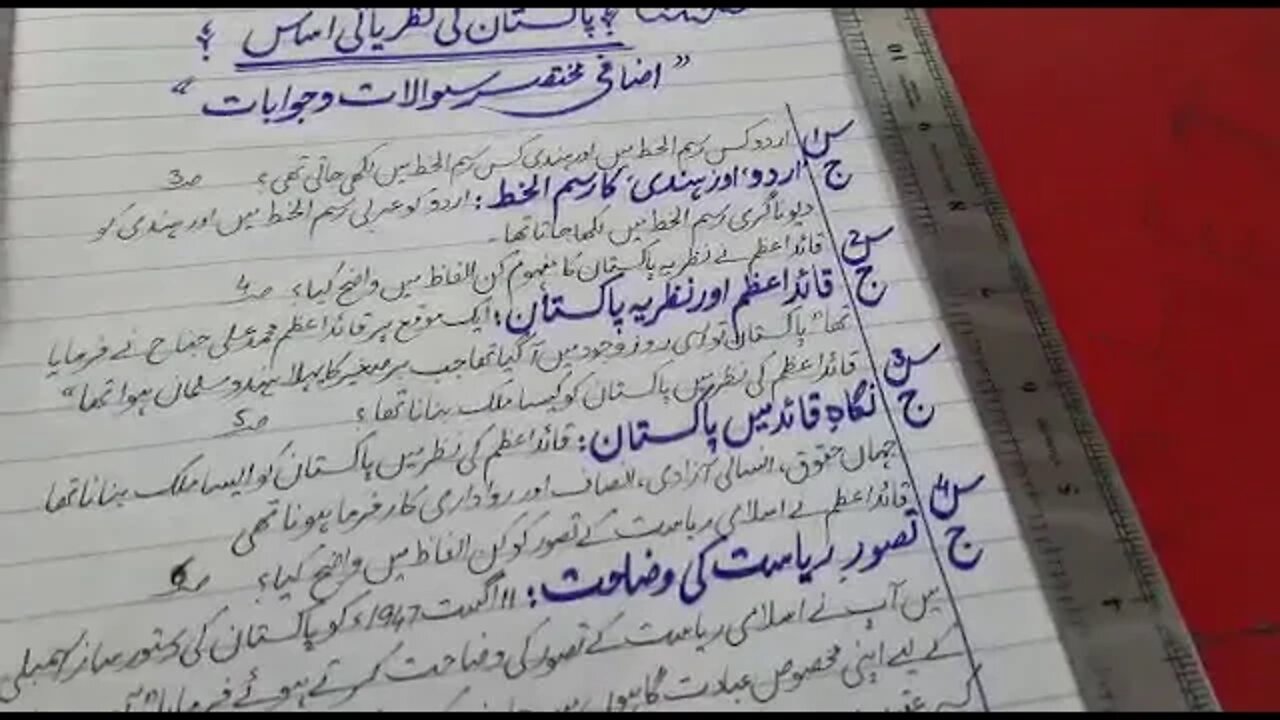 ؟ پاکستان کی نظریاتی اساس ؟
"اضافی مختصر سوالات و جوابات"
س1 اردو کس رسم الخط میں اور ہندی کس رسم الخط میں لکھی جاتی تھی؟ صـ3
ج 'اردو' اور 'ہندی' کا رسم الخط: اردو کو عربی رسم الخط میں اور ہندی کو
دیوناگری رسم الخط میں لکھا جاتا تھا۔
س2 قائداعظم نے نظریہ پاکستان کا مفہوم کن الفاظ میں واضح کیا؟ صـ4
ج قائداعظم اور نظریہ پاکستان: ایک موقع پر قائداعظم محمد علی جناح نے فرمایا
تھا "پاکستان تو اسی روز وجود میں آ گیا تھا جب برصغیر کا پہلا ہندو مسلمان ہوا تھا"
س3 قائداعظم کی نظر میں پاکستان کو کیسا ملک بنانا تھا؟ صـ5
ج نگاہِ قائد میں پاکستان: قائداعظم کی نظر میں پاکستان کو ایسا ملک بنانا تھا
جہاں حقوق، انسانی آزادی، انصاف اور رواداری کارفرما ہونا تھی
س4 قائداعظم نے اسلامی ریاست کے تصور کو کن الفاظ میں واضح کیا؟ صـ6
ج تصورِ ریاست کی وضاحت: 11 اگست 1947ء کو پاکستان کی دستور ساز اسمبلی
میں آپ نے اسلامی ریاست کے تصور کی وضاحت کرتے ہوئے فرمایا
کے لیے اپنی مخصوص عبادت گاہوں میں
کہ